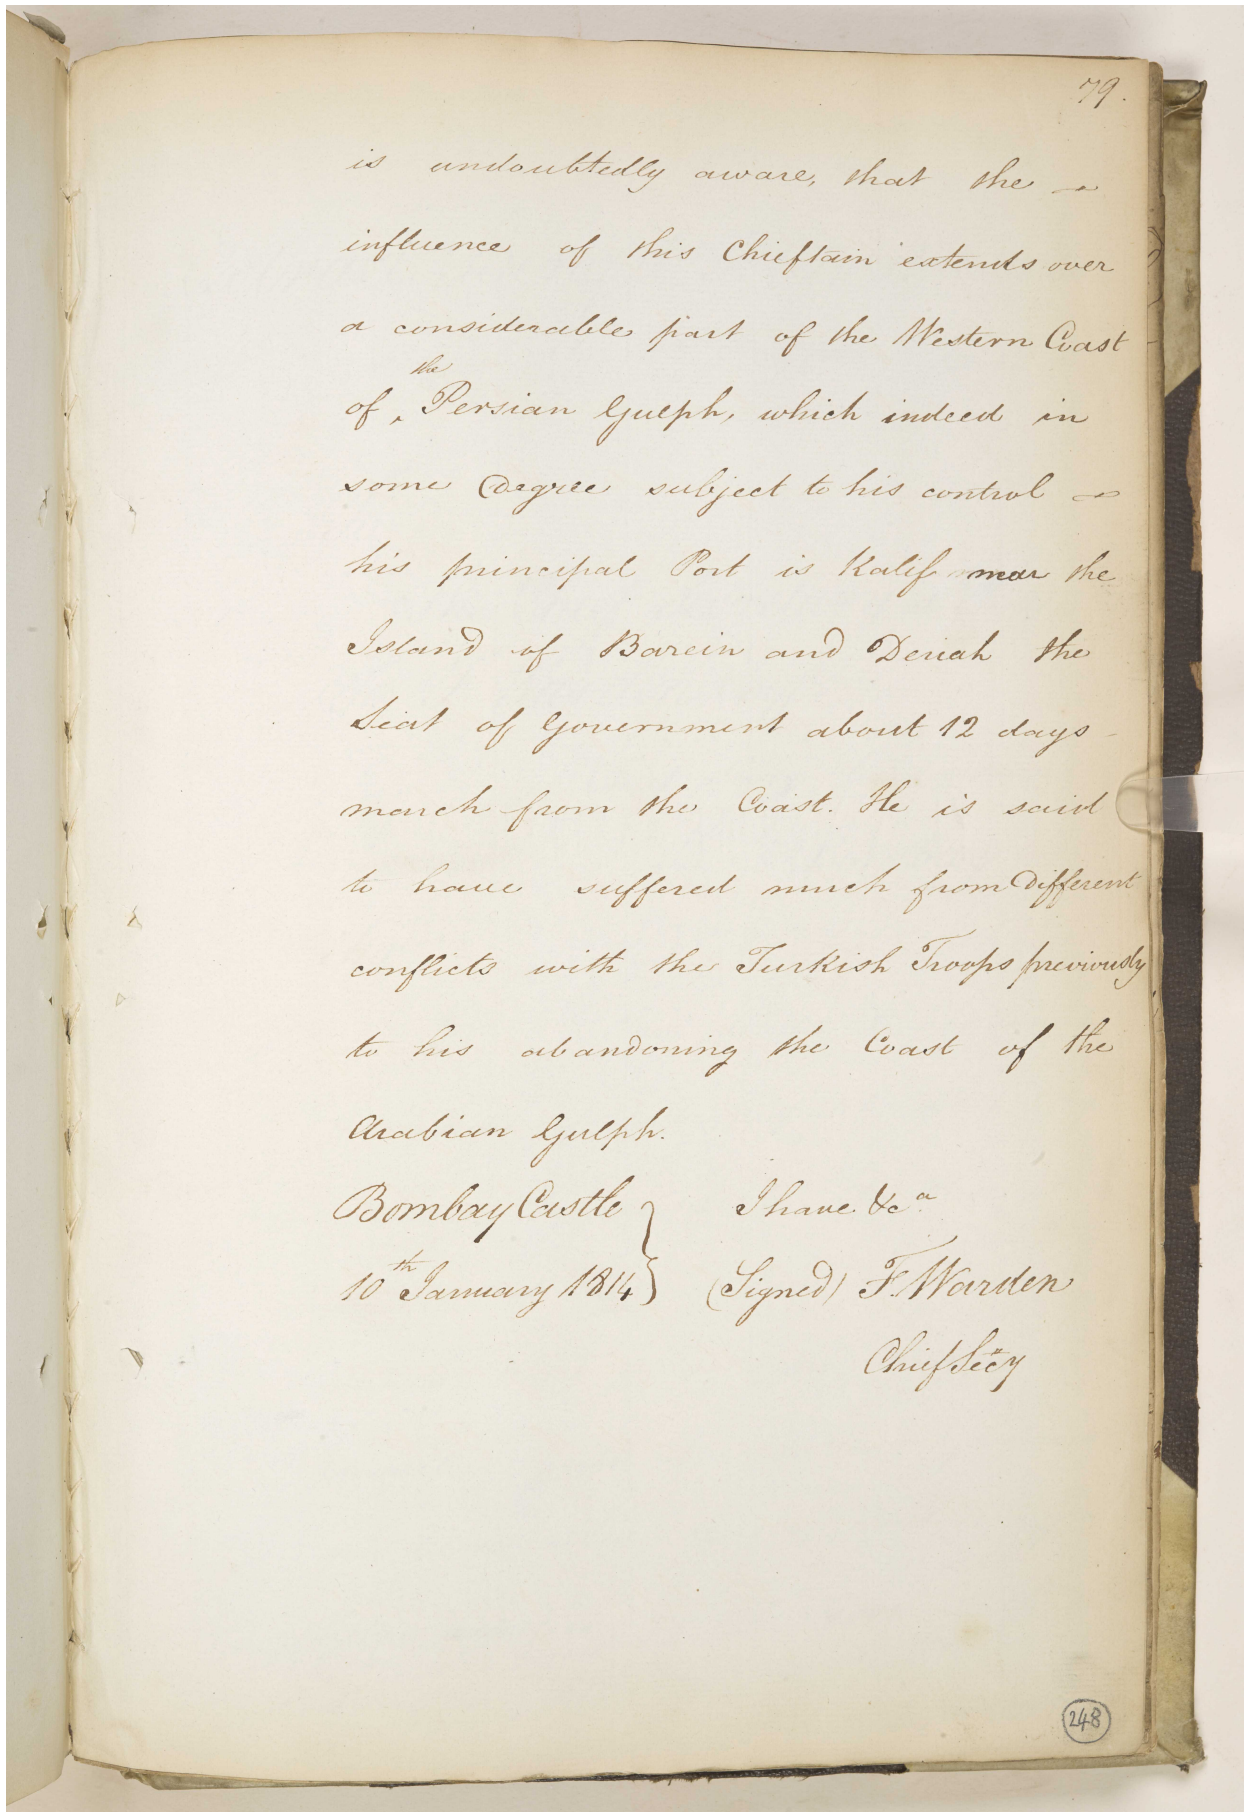 79.
is undoubtedly aware, that the
influence of this Chieftain extends over
a considerable part of the Western Coast
the
of Persian Gulph, which indeed in
some Degree subject to his control
his principal Port is Katif near the
Island of Barein and Deriah the
Seat of Government about 12 days
march from the Coast. He is said
to have suffered much from Different
conflicts with the Turkish Troops previously
to his abandoning the Coast of the
Arabian Gulph.
Bombay Castle } I have &ca.
10th January 1814 } (Signed) F. Warden
Chief Secy
248